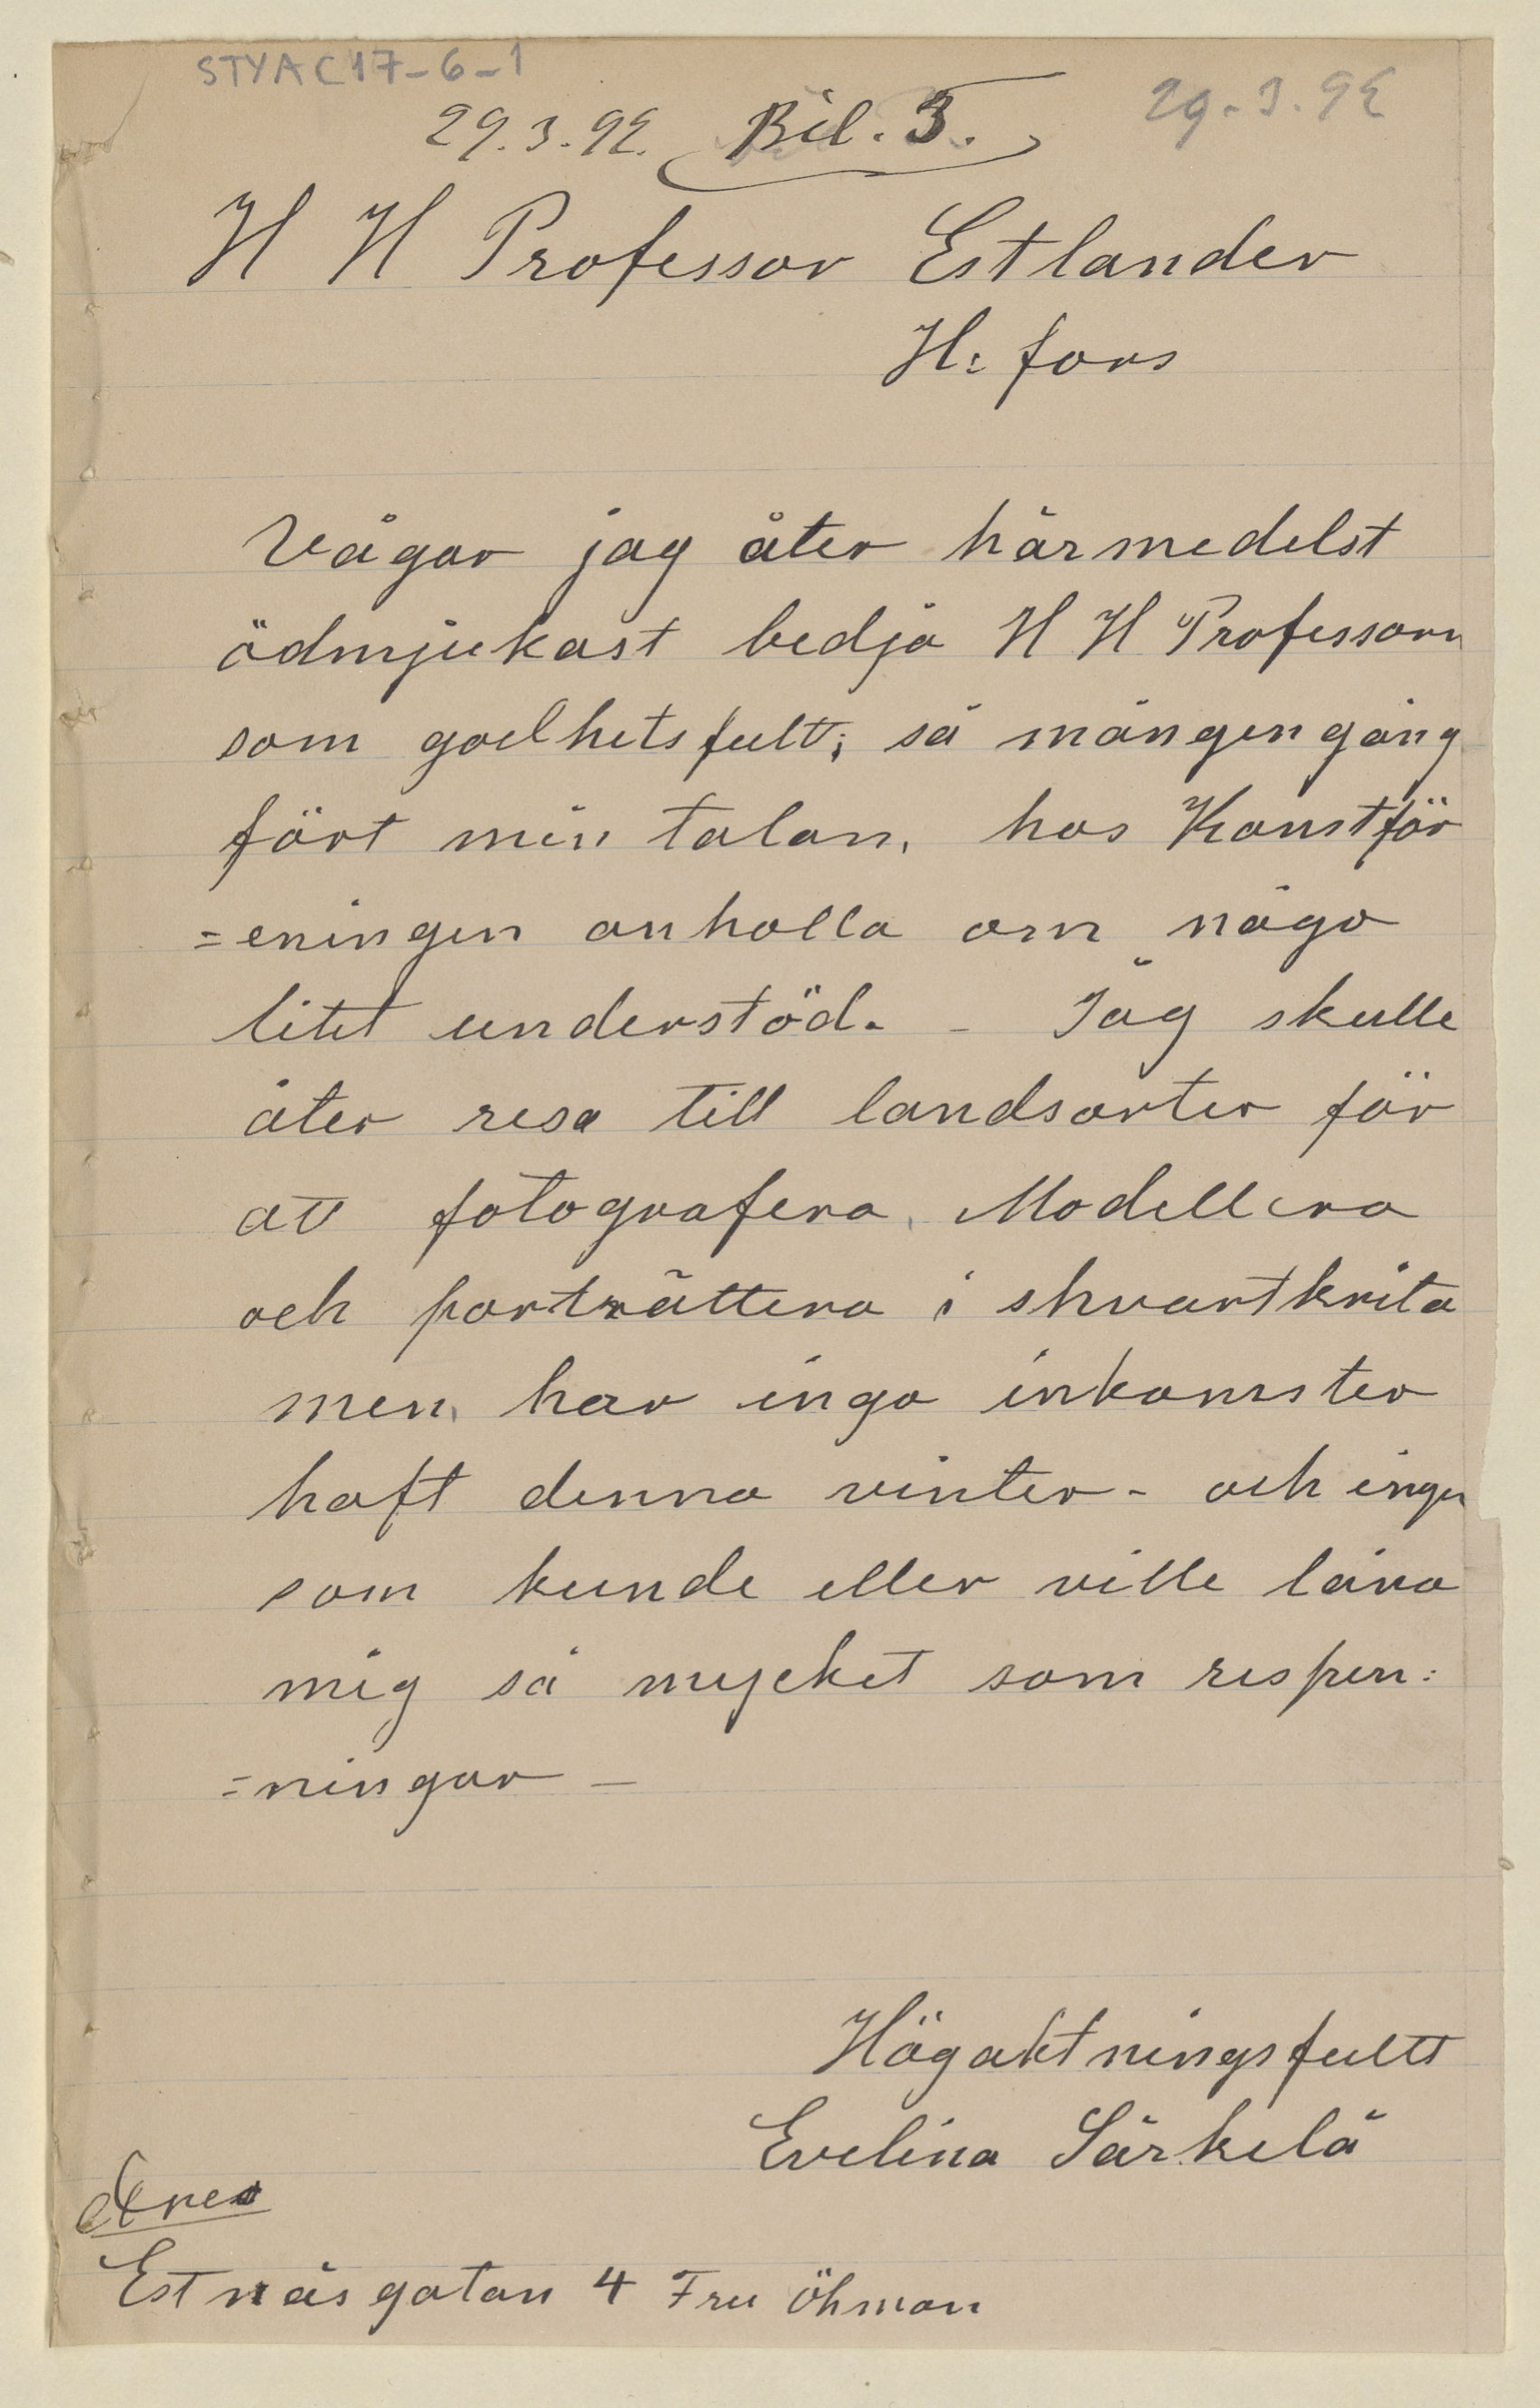 STYA C 17-6-1
29.3.92. Bil. 3. 29.3.92
H H Professor Estlander
H:fors
Vågar jag åter härmedelst
ödmjukast bedja H H Professorn
som godhetsfult; så mången gång
fört min talan, hos Konstför
=eningen anholla om någo
litet understöd. - Jag skulle
åter resa till landsorter för
att fotografera, Modellera
och porträttera i shvartkrita
men, har inga inkomster
haft denna vinter - och ingen
som kunde eller ville låna
mig så mycket som respen:
=ningar —
Högaktningsfullt
Evelina Särkelä
Estnäsgatan 4 Fru Öhman